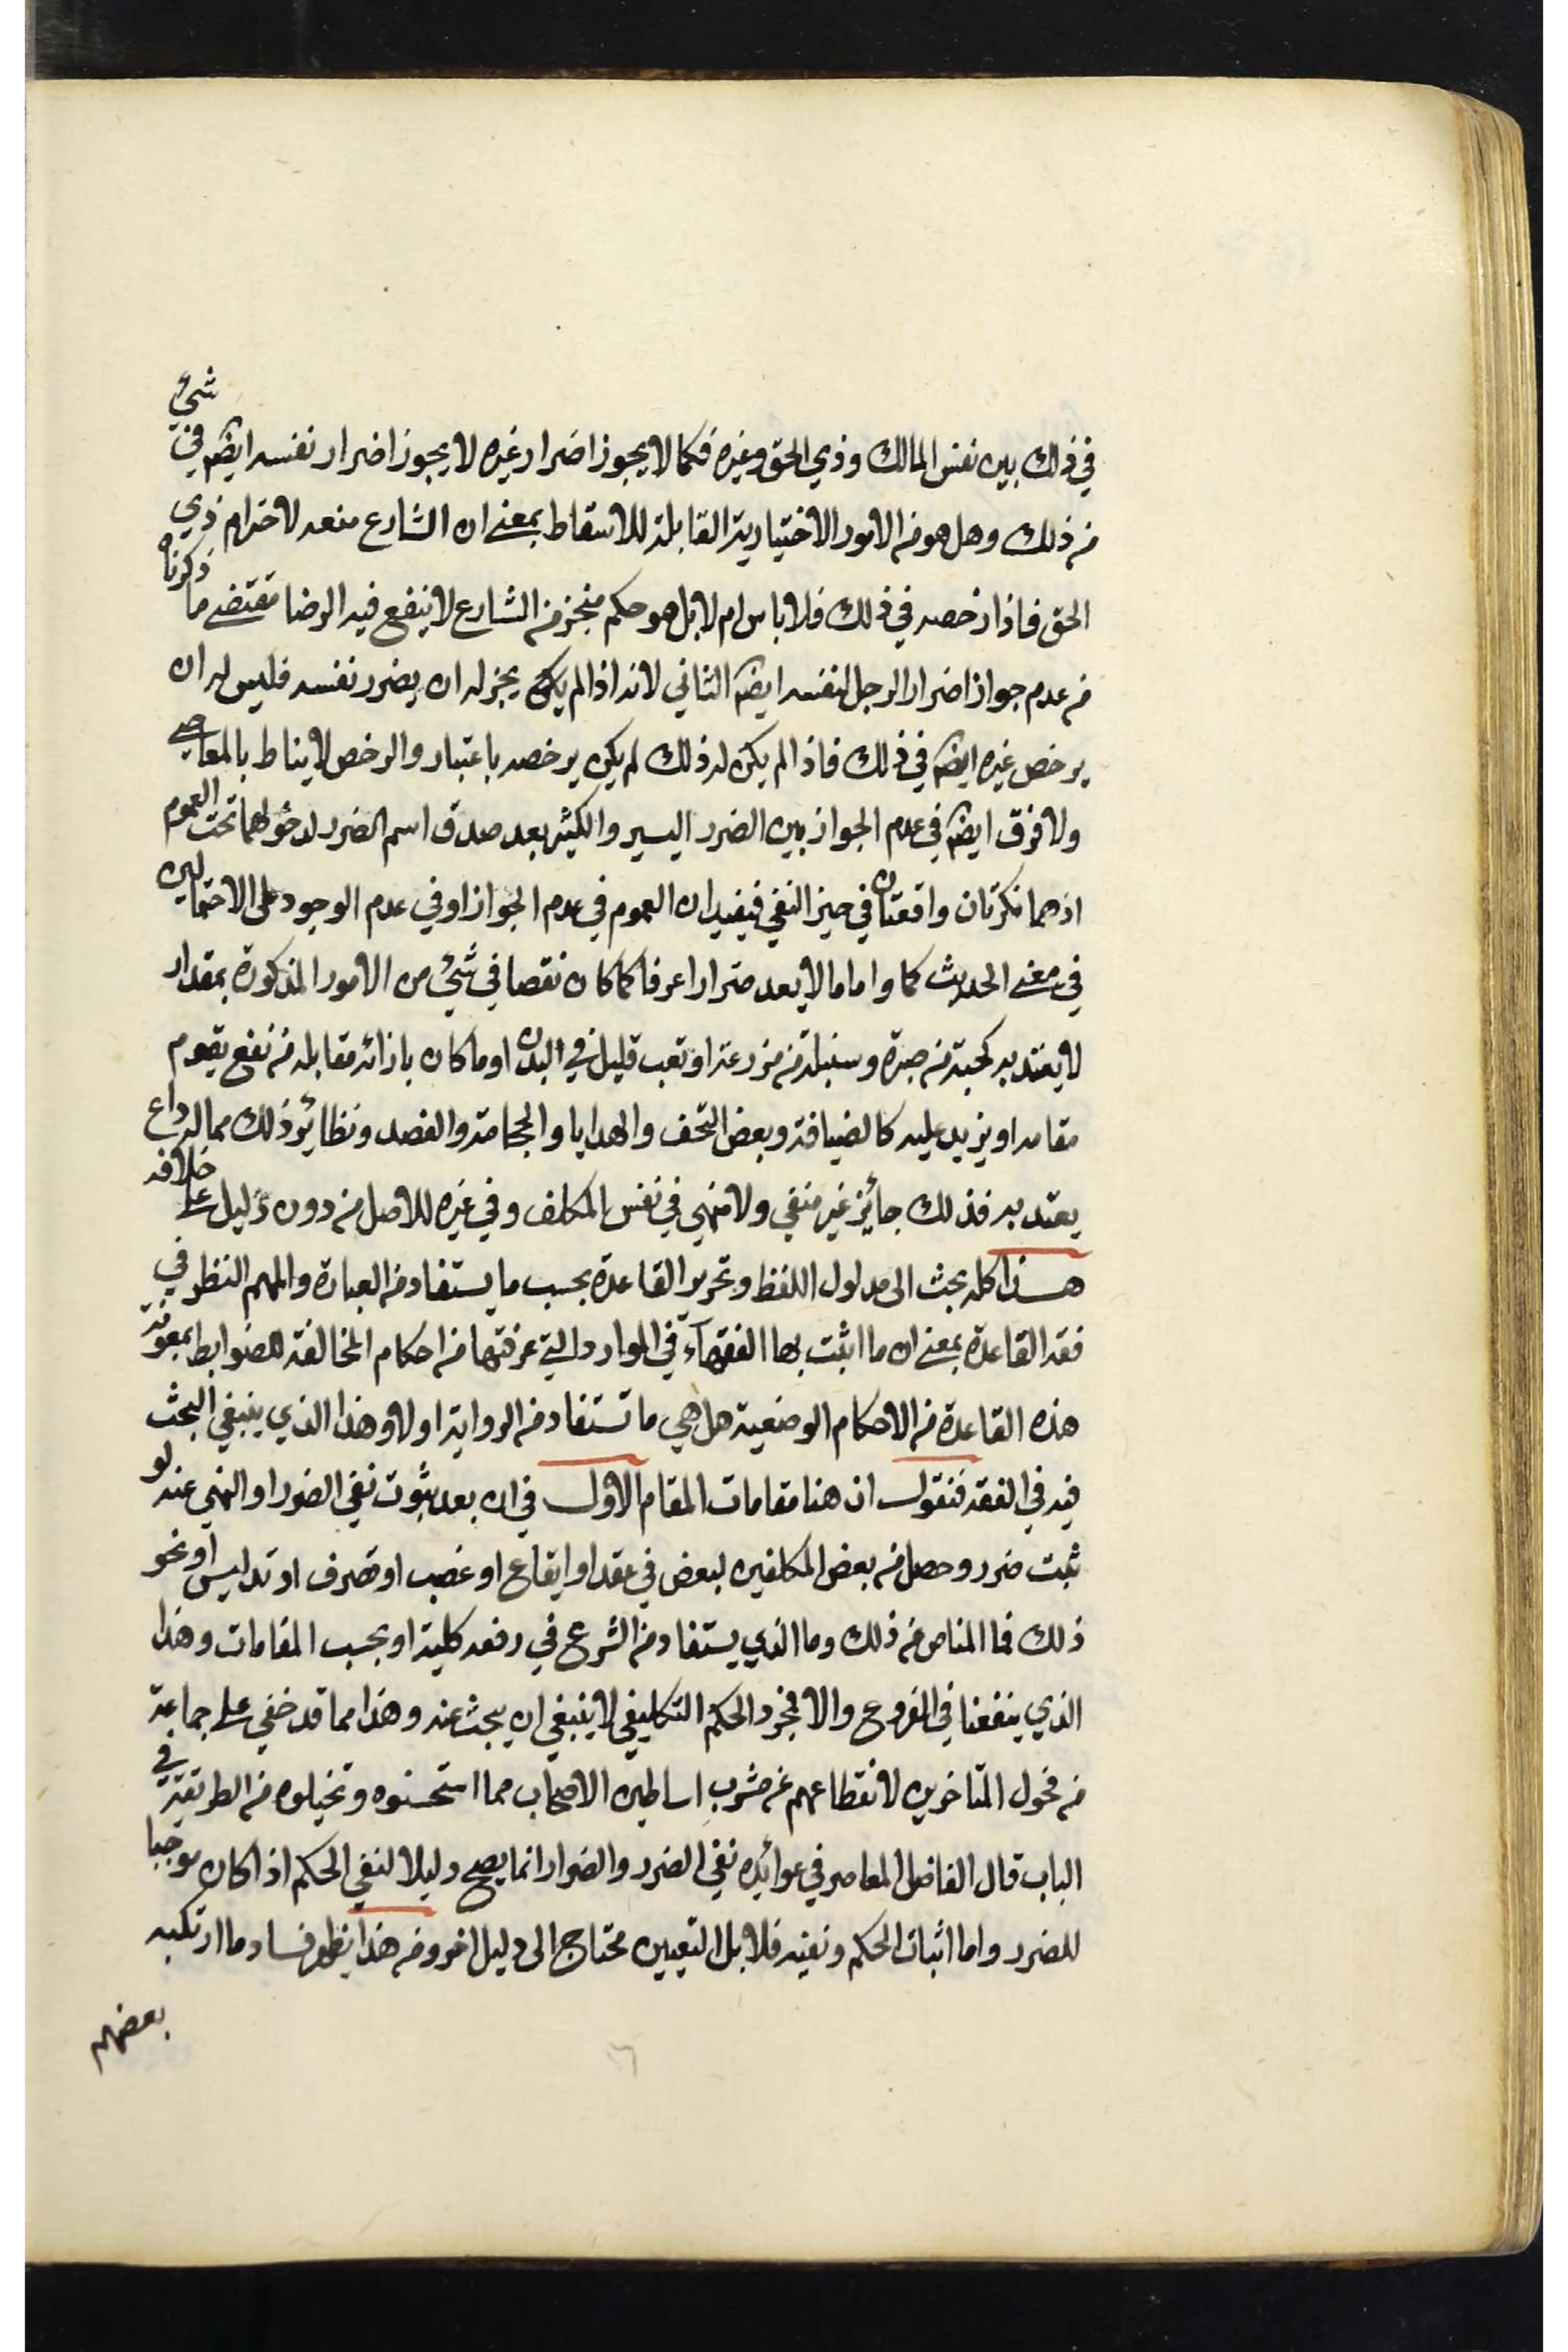 في ذلك بين نفس المالك وذي الحق وغيره فكما لا يجوز اضرار غيره لا يجوز اضرار نفسه ايضا في شئ
من ذلك وهل هو من الامور الاختيارية القابلة للاسقاط بمعنى ان الشارع منعه لاحترام ذي
الحق فاذا رخصه في ذلك فلا باس ام لا بل هو حكم منجز من الشارع لا ينفع فيه الرضا مقتضى ما ذكرنا
من عدم جواز اضرار الرجل لنفسه ايضا الثاني لانه اذا لم يكن يجز له ان يضرر نفسه فليس له ان
يرخص غيره ايضا في ذلك فاذا لم يكن له ذلك لم يكن يرخصه باعتبار والرخص لا يناط بالمعاصي
ولا فرق ايضا في عدم الجواز بين الضرر اليسير والكثير بعد صدق اسم الضرر لدخولهما تحت العموم
اذ هما نكرتان واقعتان في حيز النفي فيفيدان العموم في عدم الجواز او في عدم الوجود على الاحتمالين
في معنى الحديث كما واما ما لا يعد ضررا عرفا كما كان نقصا في شئ من الامور المذكورة بمقدار
لا يعتد به كحبة من صبرة وسنبلة من مزرعة او تعب قليل في البدن او ما كان بازائه مقابله من نفع يقوم
مقامه او يزيد عليه كالضيافة وبعض التحف والهدايا والحجامة والفصد ونظائر ذلك مما له داع
يعتد به فذلك جائز غير منفي ولا منهي في نفس المكلف وفي غيره للاصل من دون دليل على خلافه
هذا كله بحث الى مدلول اللفظ وتحرير القاعدة بحسب ما يستفاد من العبارة والمهم النظر في
فقه القاعدة بمعنى ان ما اثبت بها الفقهآء في الموارد التي عرفتها من احكام المخالفة للضوابط بمعونة
هذه القاعدة من الاحكام الوضعية هل هي ما تستفاد من الرواية اولا وهذا الذي ينبغي البحث
فيه في الفقه فنقول ان هنا مقامات المقام الاول في ان بعد ثبوت نفي الضرر او النهي عنه لو
ثبت ضرر وحصل من بعض المكلفين لبعض في عقد او ايقاع او غصب او تصرف او تدليس او نحو
ذلك فما المناص من ذلك وما الذي يستفاد من الشرع في رفعه كلية او بحسب المقامات وهذا
الذي ينفعنا في الفروع والا فمجرد الحكم التكليفي لا ينبغي ان يبحث عنه وهذا مما قد خفي على جماعة
من فحول المتاخرين لانقطاعهم عن مشرب اساطين الاصحاب مما استحسنوه وتخيلوه من الطريقة في
الباب قال الفاضل المعاصر في عوائده نفي الضرر والضرار انما يصح دليلا لنفي الحكم اذا كان موجبا
للضرر واما اثبات الحكم ونفيه فلا بل التعيين محتاج الى دليل اخر ومن هذا يظهر فساد ما ارتكبه
بعضهم